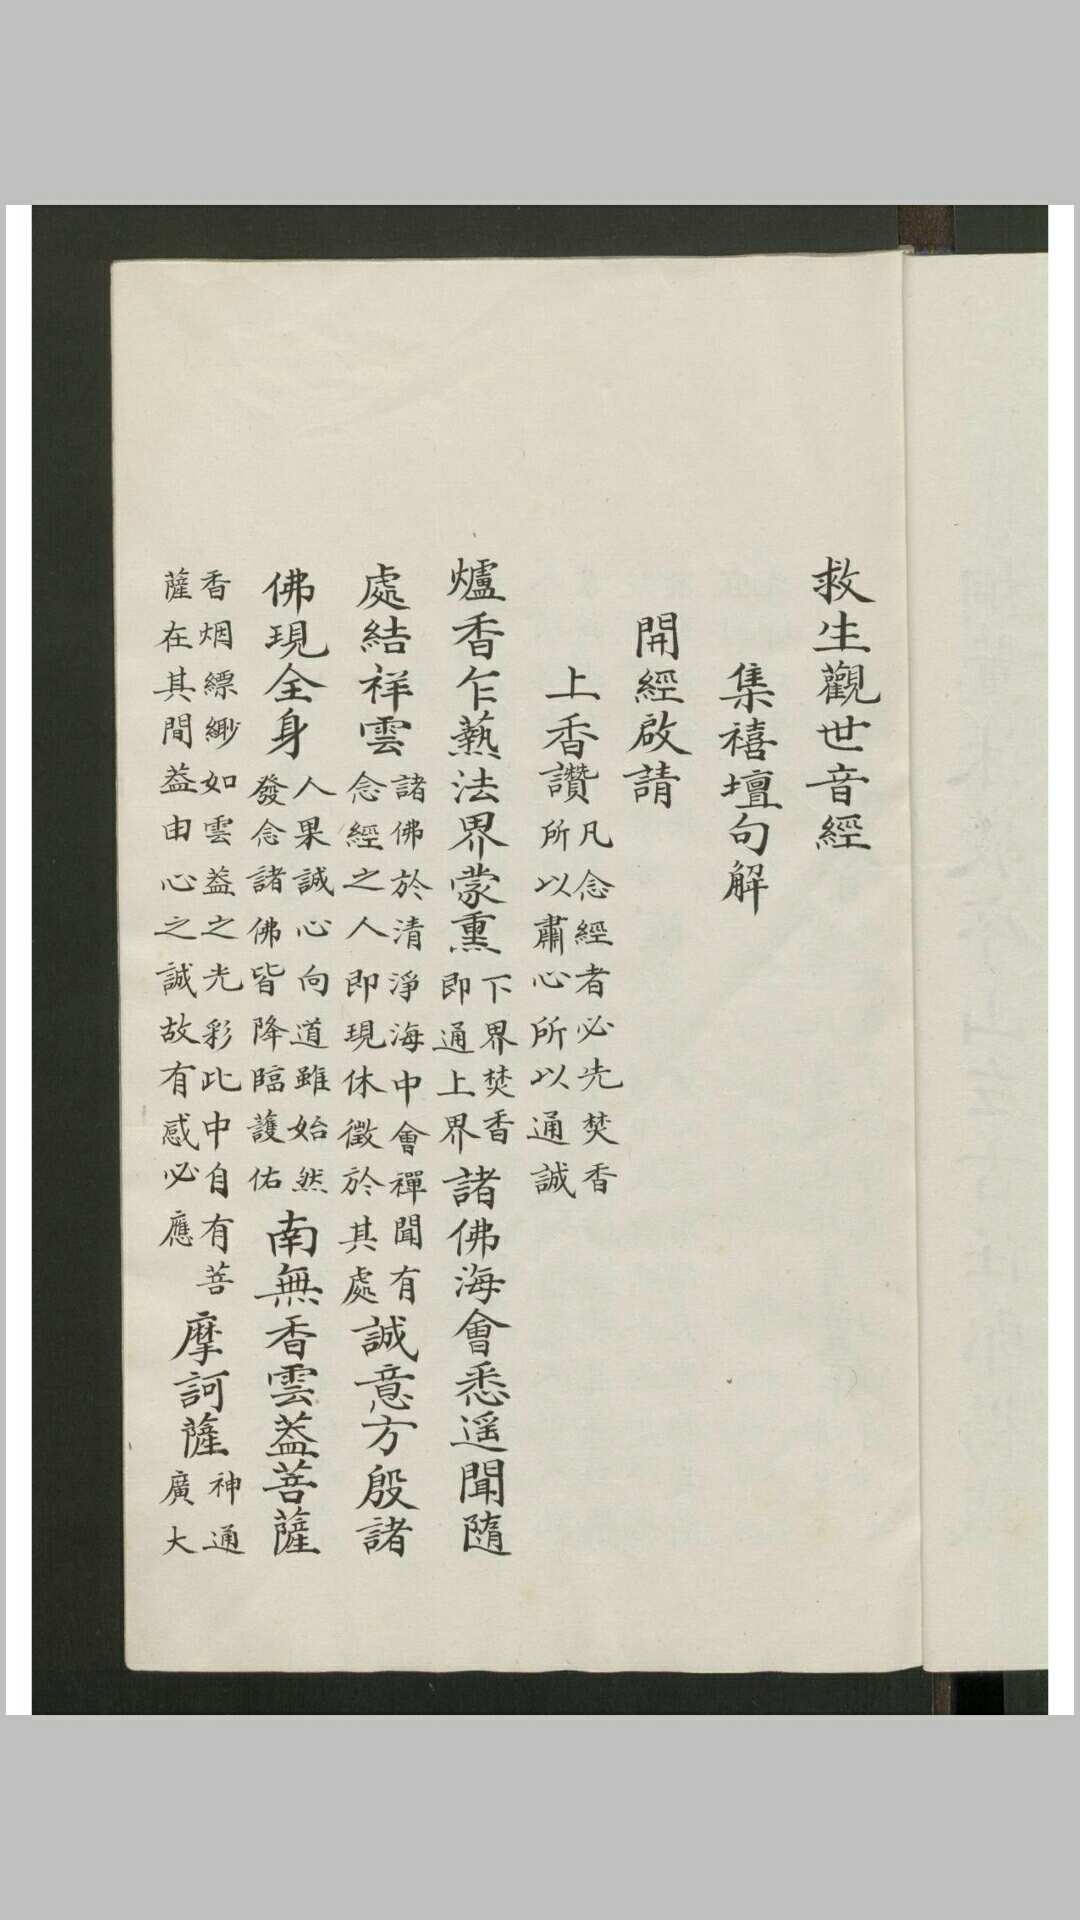 救生觀世音經
集禧壇句解
開經啟請
上香讚凡念經者必先焚香所以肅心所以通誠
爐香乍爇法界蒙熏下界焚香即通上界諸佛海會悉遥聞隨
處結祥雲諸佛於清淨海中會禪聞有念經之人即現休徵於其處誠意方殷諸
佛現全身人果誠心向道雖始然發念諸佛皆降臨護佑南無香雲葢菩薩
香烟縹緲如雲葢之光彩此中自有菩薩在其間葢由心之誠故有感必應摩訶薩神通廣大